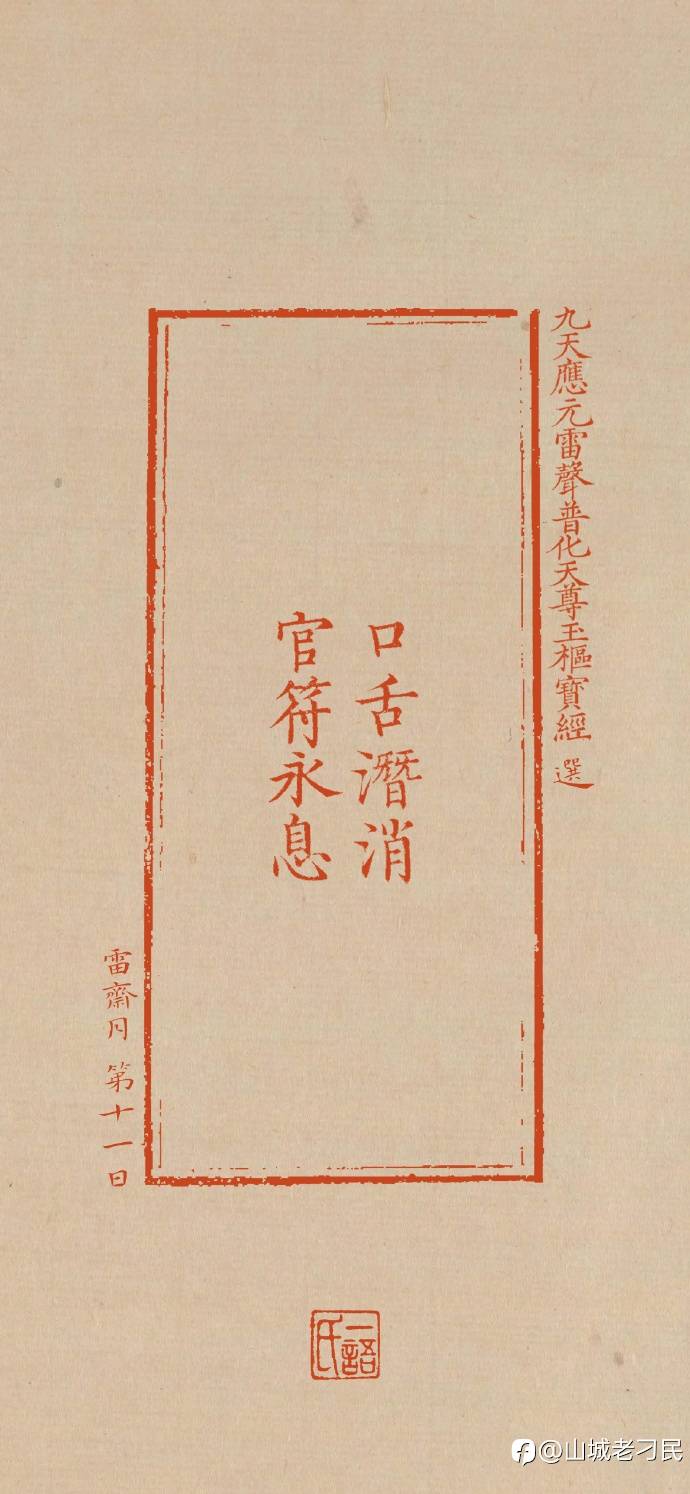 九天應元雷聲普化天尊玉樞寶經 選
口舌潛消
官符永息
雷齋月 第十一日
一語氏
@山城老刁民